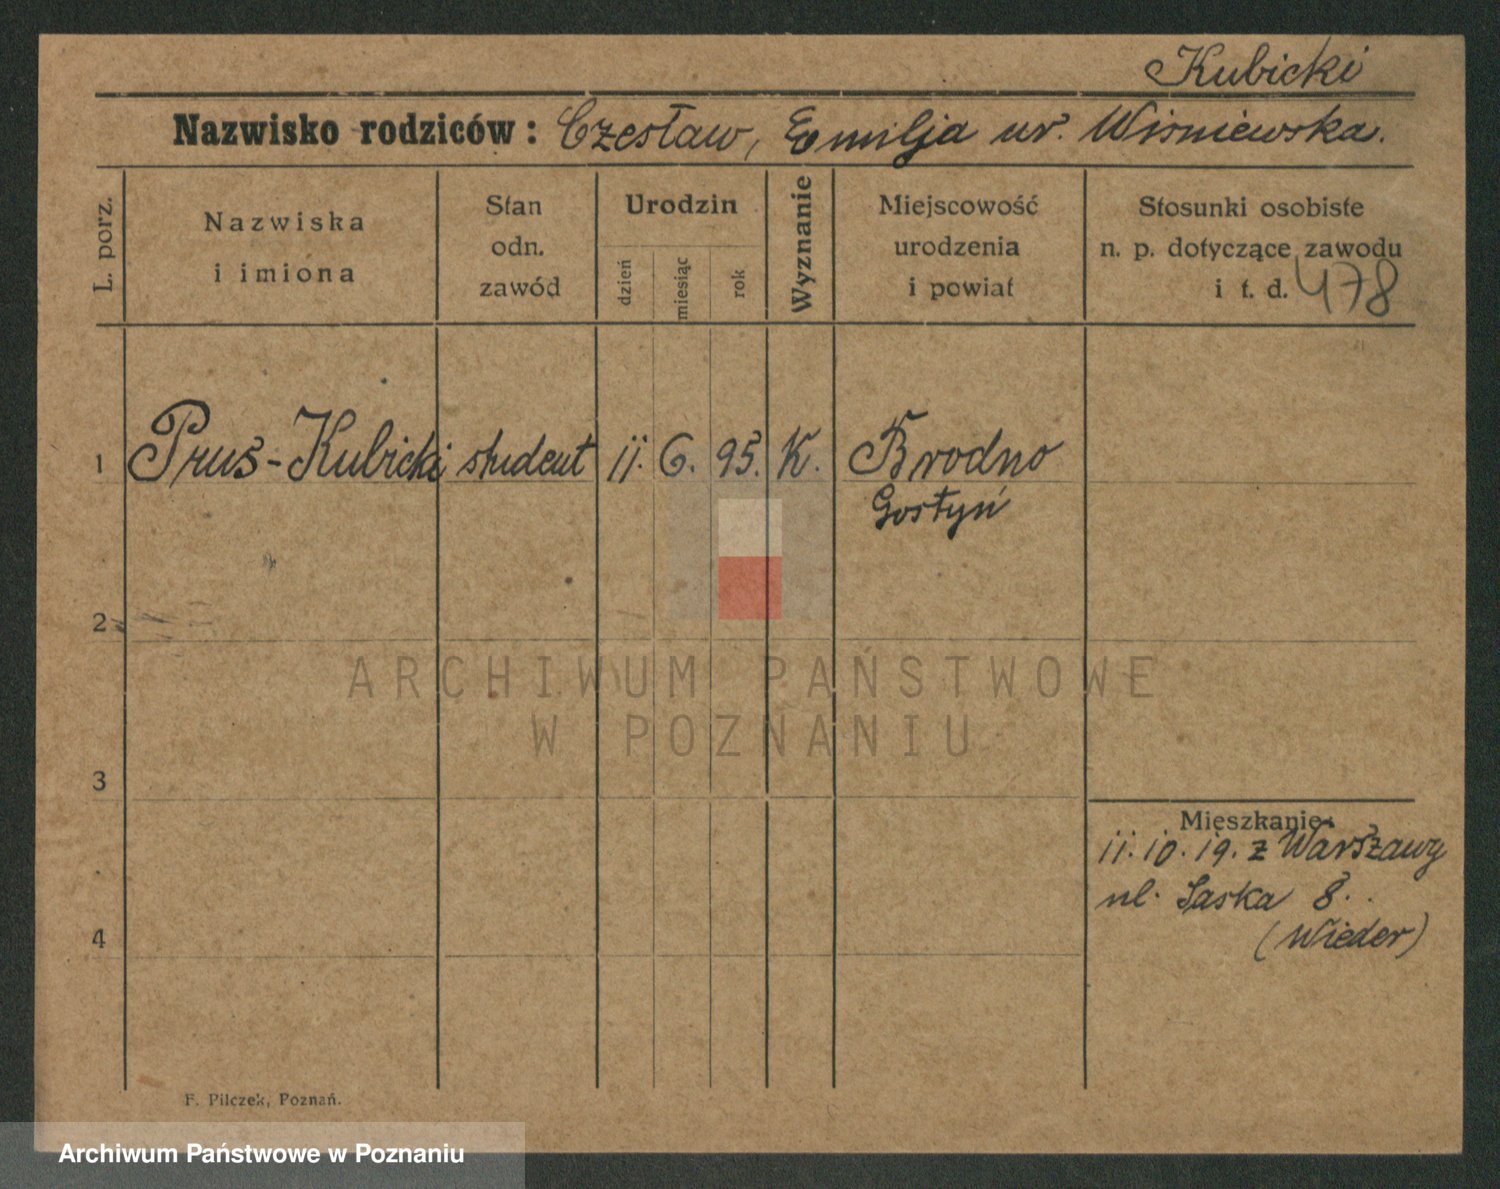 Kubicki
Nazwisko rodziców : Czesław, Emilja ur. Wiśniewska.
L. porz.
Nazwiska
i imiona
Stan
odn.
zawód
Urodzin
dzień
miesiąc
rok
Wyznanie
Miejscowość
urodzenia
i powiat
Stosunki osobiste
n. p. dotyczące zawodu
i t. d. 478
1 Prus-Kubicki student 11. 6. 95. K. Brodno
Gostyń
2
ARCHIWUM PAŃSTWOWE
W POZNANIU
3
Mieszkanie:
11.10.19. z Warszawy
ul. Saska 8.
(Wieder)
4
F. Pilczek, Poznań.
Archiwum Państwowe w Poznaniu